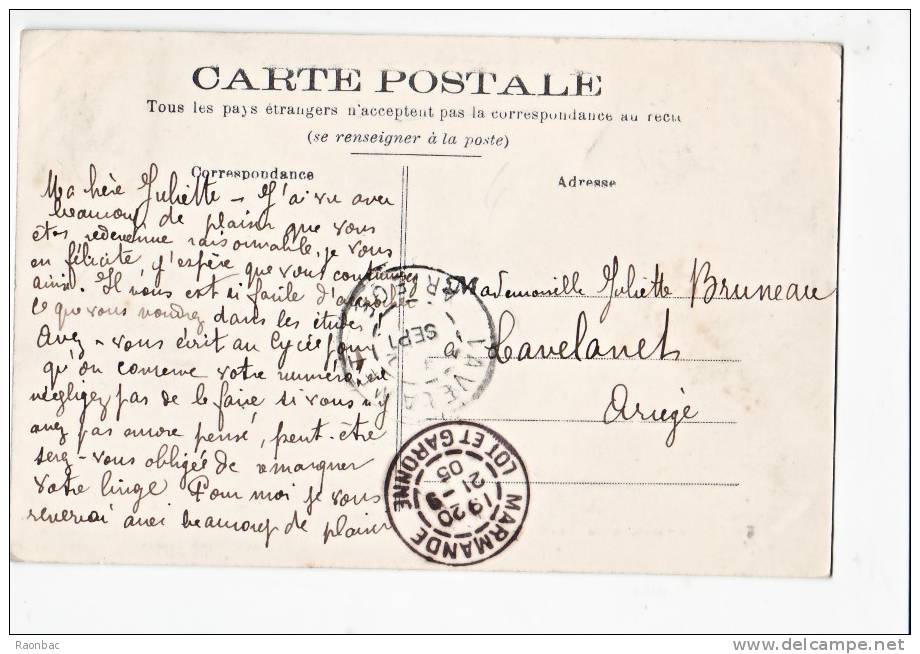 CARTE POSTALE
Tous les pays étrangers n'acceptent pas la correspondance au recto
(se renseigner à la poste)
Correspondance
Adresse
Ma chère Juliette – J'ai vu avec
beaucoup de plaisir que vous
êtes redevenue raisonnable, je vous
en félicite, j'espère que vous continuerez
ainsi. Il vous est si facile d'
ce que vous voudrez dans les études!
Avez-vous écrit au Lycée pour
qu'on conserve votre numéro, ne
négligez pas de le faire si vous n'y
avez pas encore pensé, peut-être
serez-vous obligée de remarquer
votre linge Pour moi je vous
reverrai avec beaucoup de plaisir
Mademoiselle Juliette Bruneau
à Lavelanet
Ariège
LAVELANET
SEPT
ARIEGE
MARMANDE
19 20
21 - 9
05
LOT ET GARONNE
Raonbac
www.delcampe.net